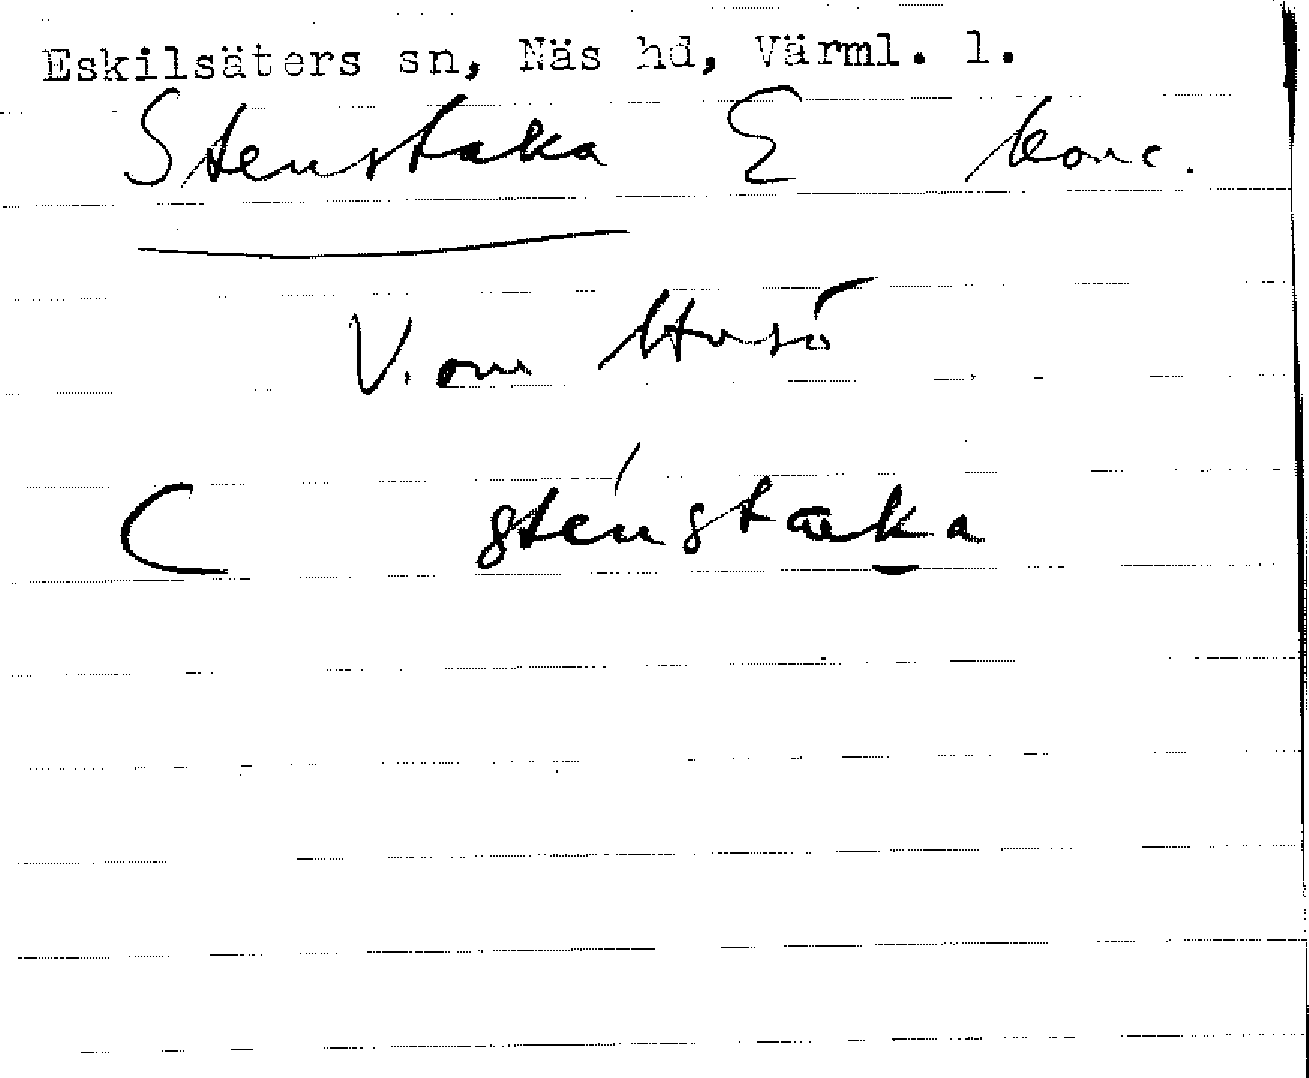 Eskilsäters sn, Näs hd, Värml. l.
Stenstaka E konc.
V. om
C sténstaka